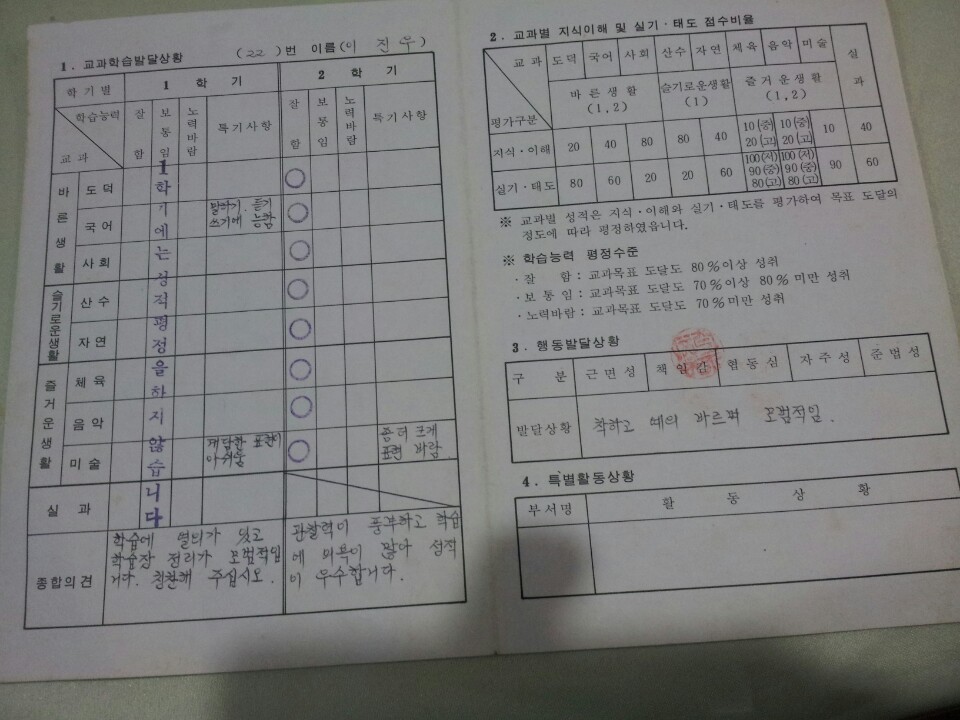 1. 교과학습발달상황
(22)번 이름(이 진우)
학기별 1 학 기 2 학 기
학습능력 교과 잘함 보통임 노력바람 특기사항 잘함 보통임 노력바람 특기사항
바른생활
도덕 ○
국어 말하기. 듣기 ○
쓰기에 능함
사회 ○
슬기로운생활
산수 ○
자연 ○
즐거운생활
체육 ○
음악 ○
미술 대담한 표현이 ○ 좀 더 크게
아쉬움 표현 바람.
실 과
1학기에는성적평정을하지않습니다
종합의견
학습에 열의가 있고
학습장 정리가 모범적입
니다. 칭찬해 주십시오.
관찰력이 풍부하고 학습
에 의욕이 많아 성적
이 우수합니다.
2. 교과별 지식이해 및 실기·태도 점수비율
교과 도덕 국어 사회 산수 자연 체육 음악 미술 실과
평가구분 바른생활 (1,2) 슬기로운생활 (1) 즐거운생활 (1,2)
지식·이해 20 40 80 80 40 10(중) 10(중) 10 40
20(고) 20(고)
실기·태도 80 60 20 20 60 100(저) 100(저) 90 60
90(중) 90(중)
80(고) 80(고)
※ 교과별 성적은 지식·이해와 실기·태도를 평가하여 목표 도달의
정도에 따라 평정하였읍니다.
※ 학습능력 평정수준
·잘 함 : 교과목표 도달도 80%이상 성취
·보통임 : 교과목표 도달도 70%이상 80%미만 성취
·노력바람 : 교과목표 도달도 70%미만 성취
3. 행동발달상황
구 분 근면성 책임감 협동심 자주성 준법성
발달상황 착하고 예의 바르며 모범적임.
4. 특별활동상황
부서명 활 동 상 황